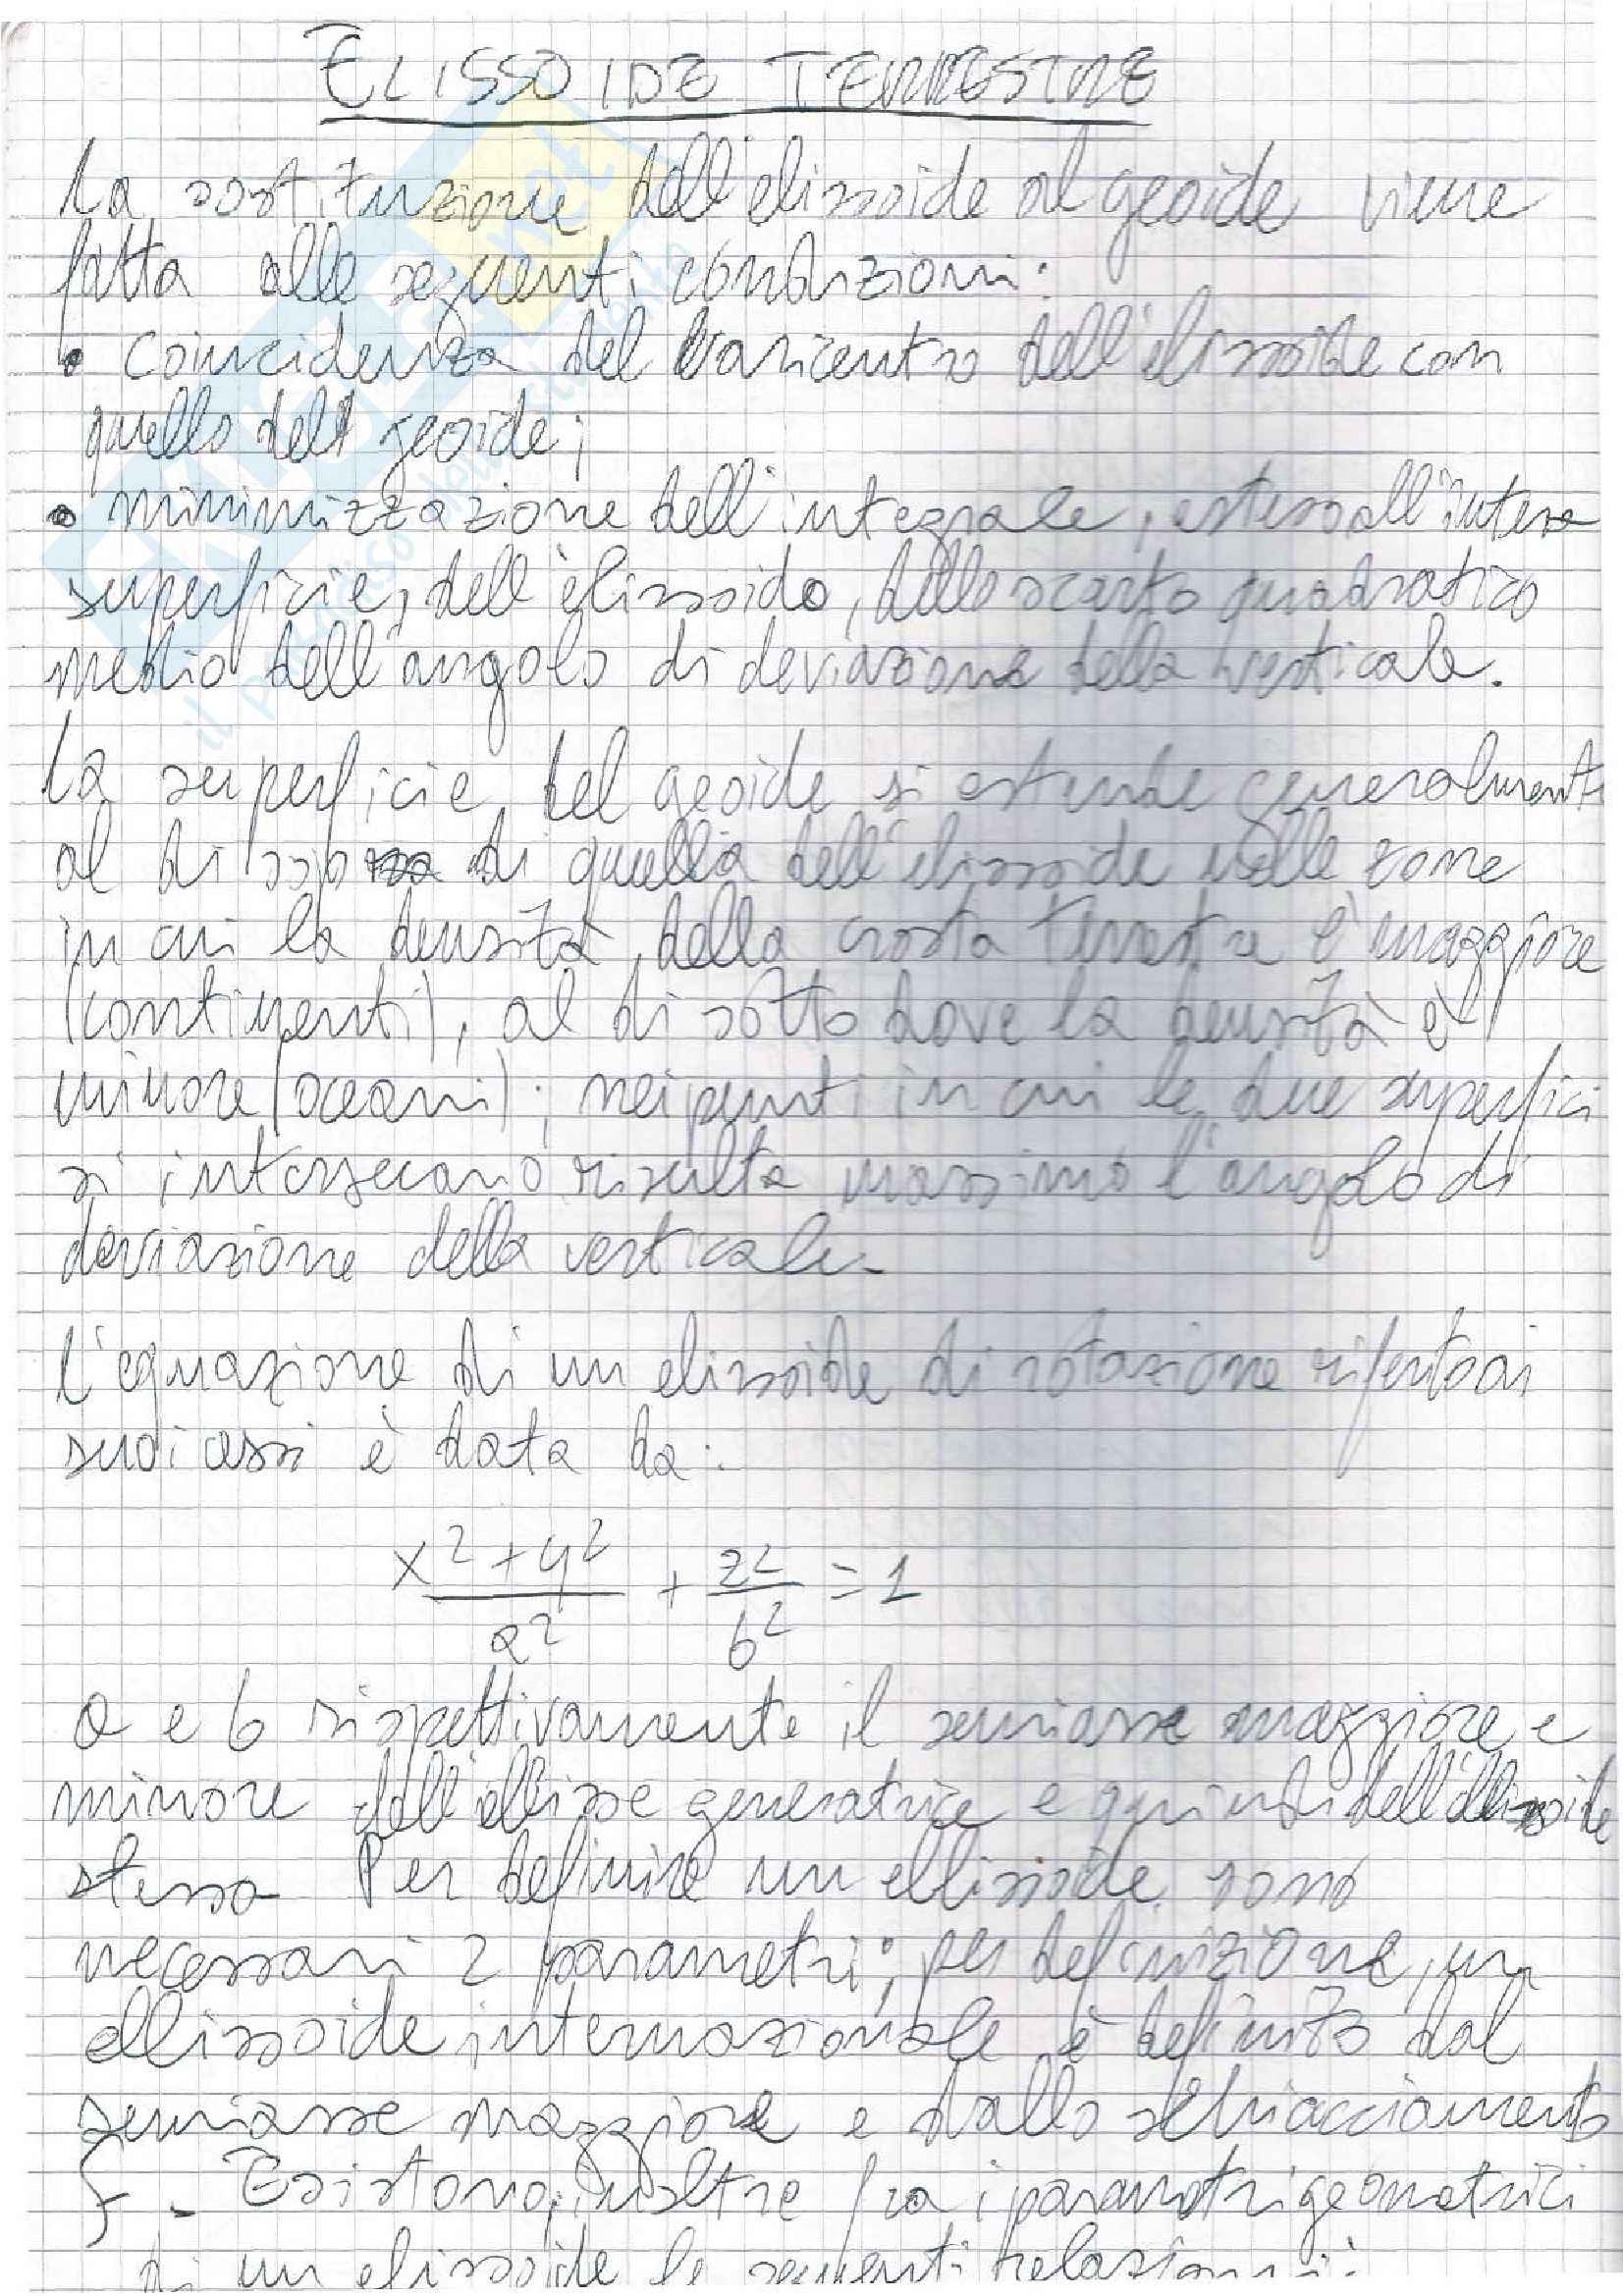 ELISSOIDE TERRESTRE
La sostituzione dell'elissoide al geoide viene
fatta alle seguenti condizioni:
• coincidenza del baricentro dell'elissoide con
quello del geoide;
• minimizzazione dell'integrale, esteso all'intera
superficie, dell'elissoide, dello scarto quadratico
medio dell'angolo di deviazione della verticale.
La superficie del geoide si estende generalmente
al di sopra di quella dell'elissoide nelle zone
in cui la densità della crosta terrestre è maggiore
(continenti), al di sotto dove la densità è
minore (oceani); nei punti in cui le due superfici
si intersecano risulta massimo l'angolo di
deviazione della verticale.
L'equazione di un elissoide di rotazione riferito ai
suoi assi è data da:
x² + y² / a² + z² / b² = 1
a e b rispettivamente il semiasse maggiore e
minore dell'ellisse generatrice e quindi dell'ellissoide
stesso Per definire un ellissoide sono
necessari 2 parametri; per definizione, un
ellissoide internazionale è definito dal
semiasse maggiore e dallo schiacciamento
f. Esistono, inoltre fra i parametri geometrici
di un elissoide le seguenti relazioni: